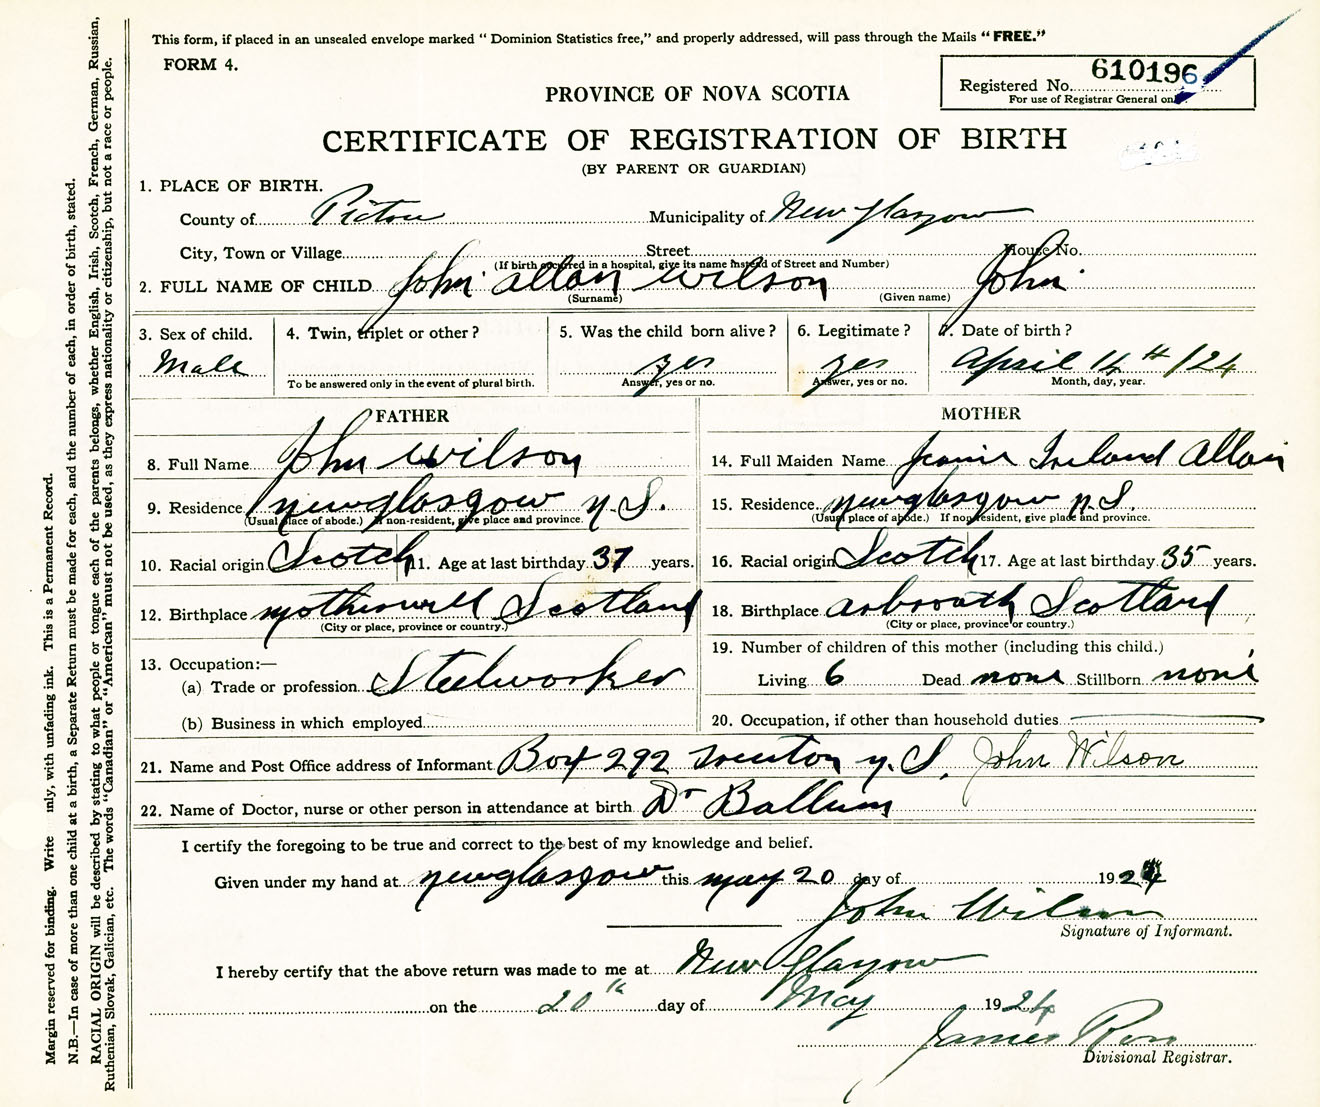 This form, if placed in an unsealed envelope marked " Dominion Statistics free," and properly addressed, will pass through the Mails "FREE."
FORM 4.
Registered No. 610196
For use of Registrar General on
PROVINCE OF NOVA SCOTIA
CERTIFICATE OF REGISTRATION OF BIRTH
(BY PARENT OR GUARDIAN)
1. PLACE OF BIRTH.
County of Pictou Municipality of New Glasgow
City, Town or Village Street House No.
(If birth occurred in a hospital, give its name instead of Street and Number)
2. FULL NAME OF CHILD John allan wilson John
(Surname) (Given name)
3. Sex of child. Male
4. Twin, triplet or other?
To be answered only in the event of plural birth.
5. Was the child born alive? yes
Answer, yes or no.
6. Legitimate? yes
Answer, yes or no.
7. Date of birth? April 14th /24
Month, day, year.
FATHER
8. Full Name John wilson
9. Residence newglasgow n.S.
(Usual place of abode.) If non-resident, give place and province.
10. Racial origin Scotch 11. Age at last birthday 37 years.
12. Birthplace motherwell Scotland
(City or place, province or country.)
13. Occupation:—
(a) Trade or profession Steelworker
(b) Business in which employed
MOTHER
14. Full Maiden Name Jeanie Ireland Allan
15. Residence newglasgow n.S.
(Usual place of abode.) If nonresident, give place and province.
16. Racial origin Scotch 17. Age at last birthday 35 years.
18. Birthplace arbroath Scotland
(City or place, province or country.)
19. Number of children of this mother (including this child.)
Living 6 Dead none Stillborn none
20. Occupation, if other than household duties
21. Name and Post Office address of Informant Box 292 Trenton n.S. John Wilson
22. Name of Doctor, nurse or other person in attendance at birth Dr Ballem
I certify the foregoing to be true and correct to the best of my knowledge and belief.
Given under my hand at newglasgow this may 20 day of 1924
John Wilson
Signature of Informant.
I hereby certify that the above return was made to me at New Glasgow
on the 20th day of May 1924
James Ross
Divisional Registrar.
Margin reserved for binding. Write nly, with unfading ink. This is a Permanent Record.
N.B.—In case of more than one child at a birth, a Separate Return must be made for each, and the number of each, in order of birth, stated.
RACIAL ORIGIN will be described by stating to what people or tongue each of the parents belongs, whether English, Irish, Scotch, French, German, Russian,
Ruthenian, Slovak, Galician, etc. The words "Canadian" or "American" must not be used, as they express nationality or citizenship, but not a race or people.